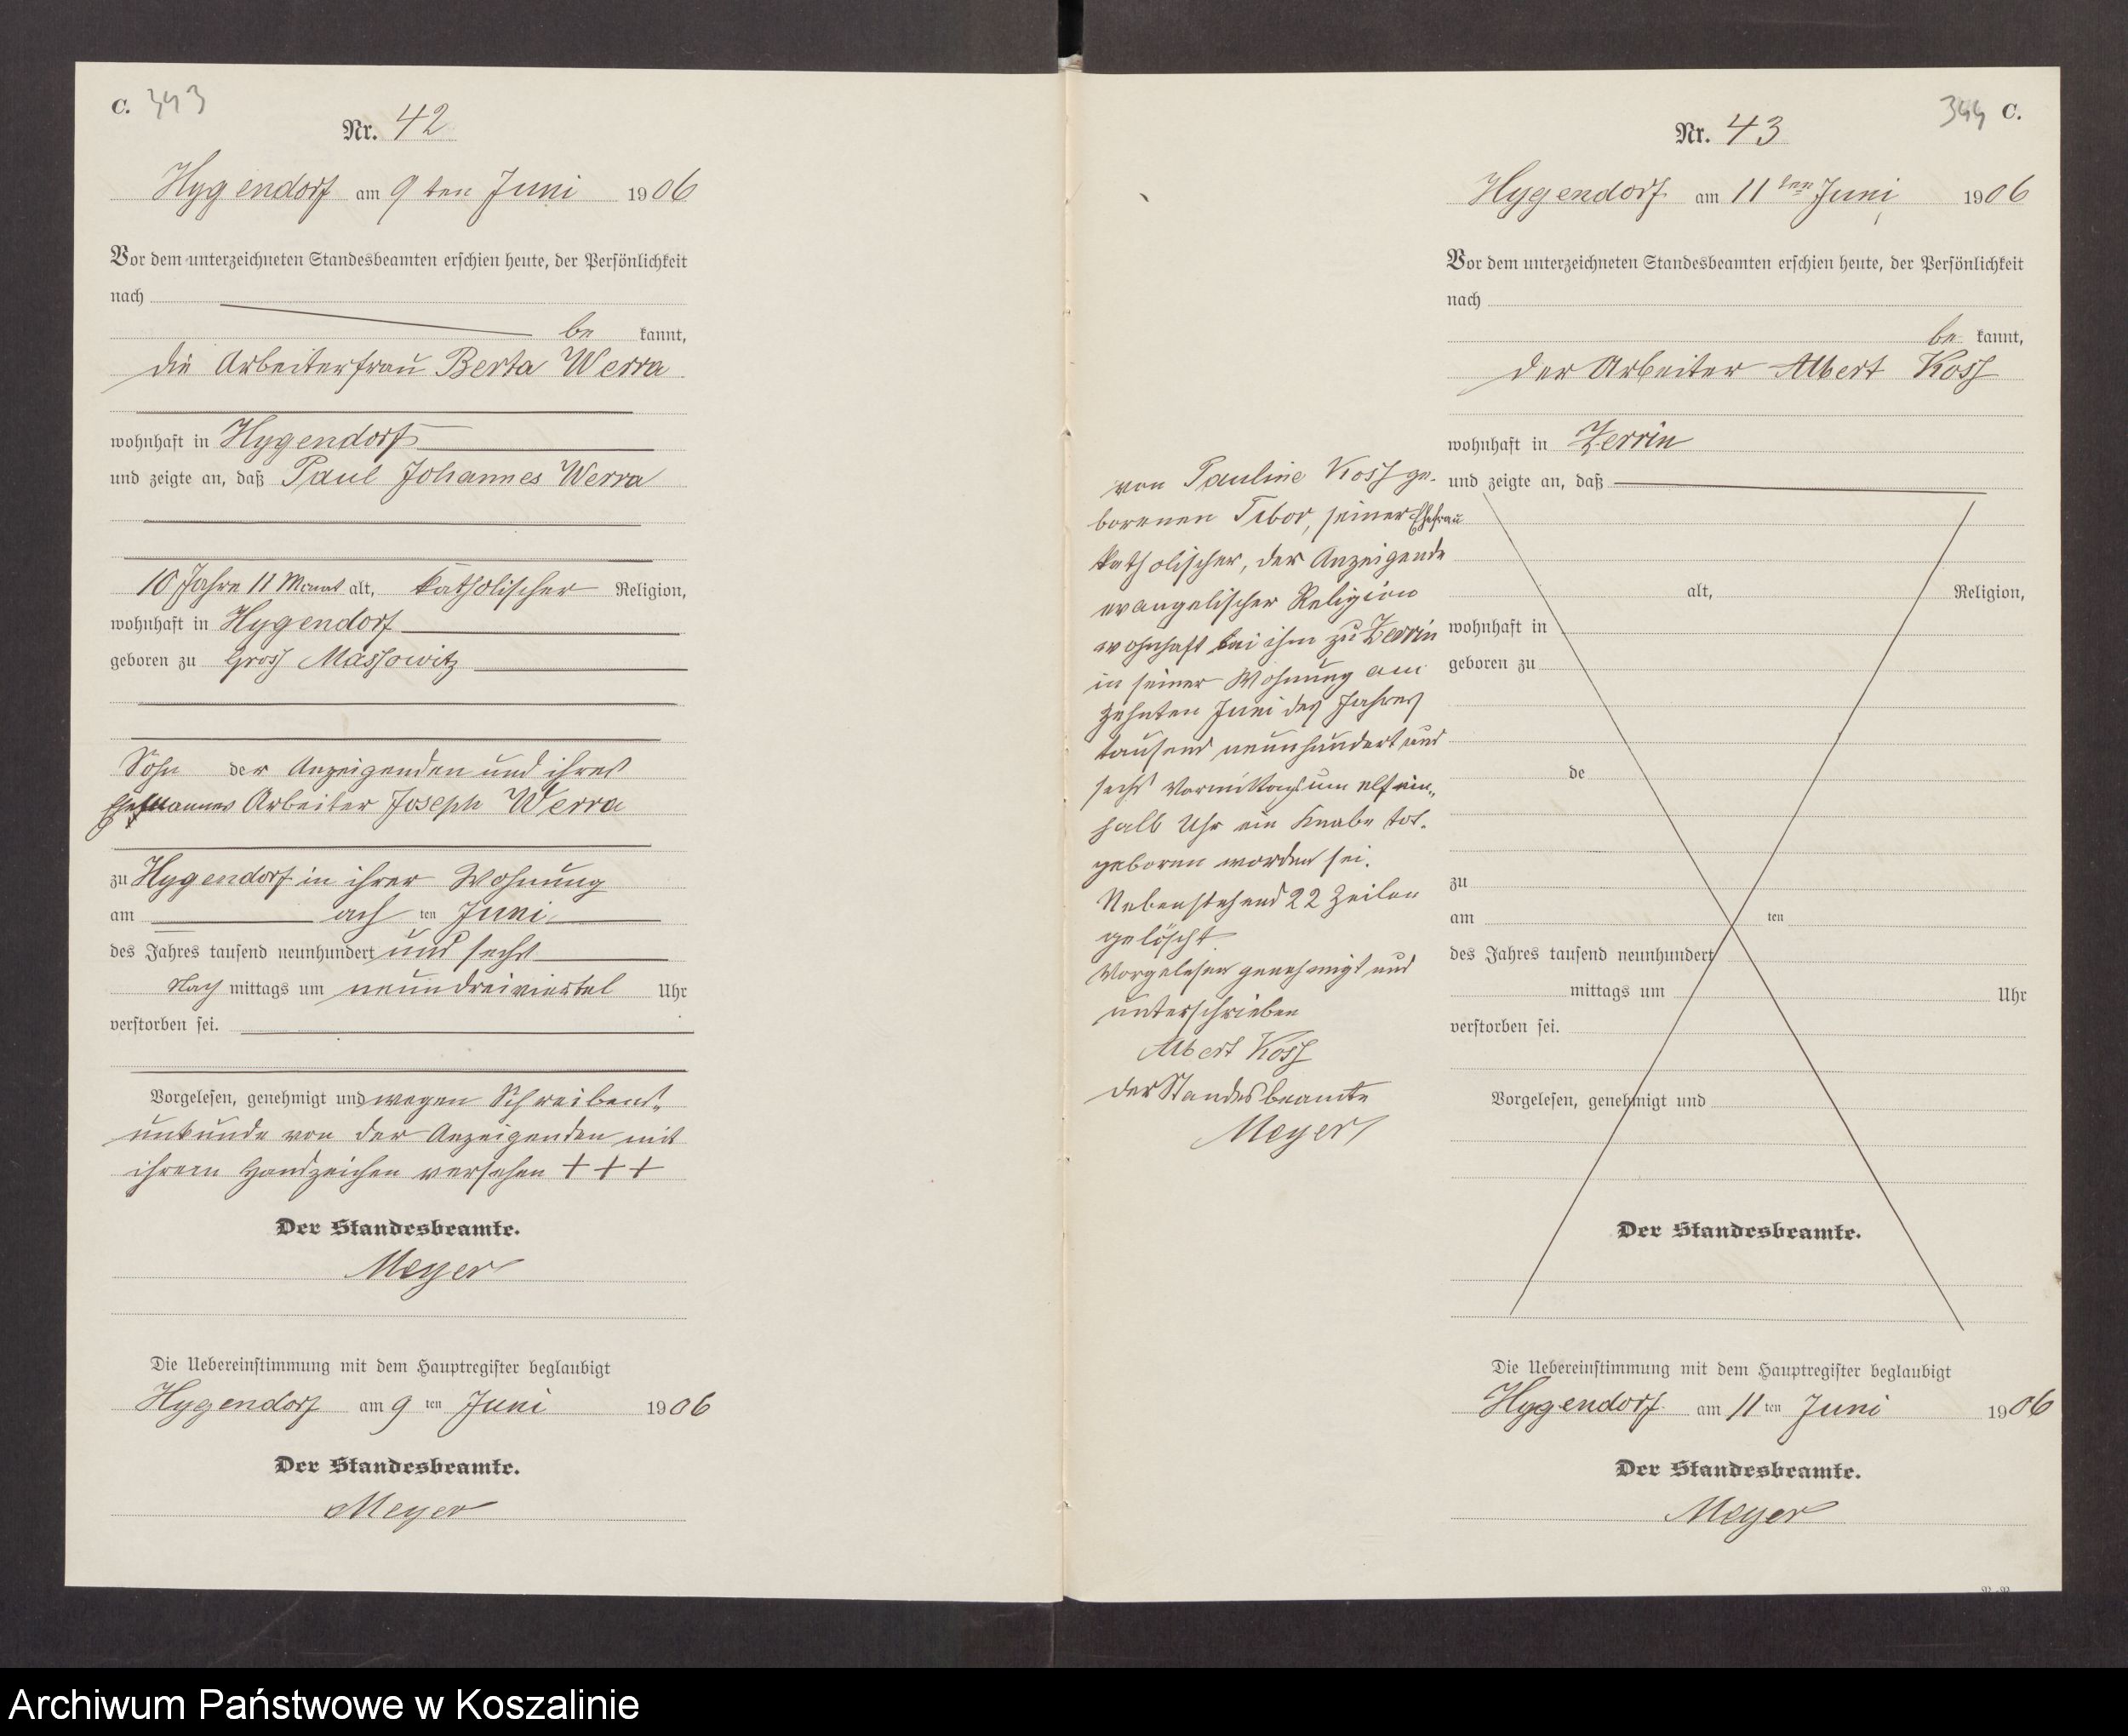 C. 343
Nr. 42
Hygendorf am 9ten Juni 1906
Vor dem unterzeichneten Standesbeamten erschien heute, der Persönlichkeit
nach
be kannt,
die Arbeiterfrau Berta Werra
wohnhaft in Hygendorf
und zeigte an, daß Paul Johannes Werra
10 Jahre 11 Monat alt, katholischer Religion,
wohnhaft in Hygendorf
geboren zu Gross Massowitz
Sohn der Anzeigenden und ihres
Ehemannes Arbeiter Joseph Werra
zu Hygendorf in ihrer Wohnung
am ach ten Juni
des Jahres tausend neunhundert und sechs
Nach mittags um neundreiviertel Uhr
verstorben sei.
Vorgelesen, genehmigt und wegen Schreibens-
unkunde von der Anzeigenden mit
ihrem Handzeichen versehen + + +
Der Standesbeamte.
Meyer
Die Uebereinstimmung mit dem Hauptregister beglaubigt
Hygendorf am 9 ten Juni 1906
Der Standesbeamte.
Meyer
344 C.
Nr. 43
Hygendorf am 11ten Juni 1906
Vor dem unterzeichneten Standesbeamten erschien heute, der Persönlichkeit
nach
be kannt,
der Arbeiter Albert Koss
wohnhaft in Zerrin
und zeigte an, daß
von Pauline Koss ge-
borenen Tebor, seiner Ehefrau
katholischer, der Anzeigende
evangelischer Religion
wohnhaft bei ihm zu Zerrin
in seiner Wohnung am
zehnten Juni des Jahres
tausend neunhundert und
sechs Vormittags um elfein-
halb Uhr ein Knabe tot-
geboren worden sei.
Nebenstehend 22 Zeilen
gelöscht.
Vorgelesen genehmigt und
unterschrieben
Albert Koss
Der Standesbeamte
Meyer
alt, Religion,
wohnhaft in
geboren zu
de
zu
am ten
des Jahres tausend neunhundert
mittags um Uhr
verstorben sei.
Vorgelesen, genehmigt und
Der Standesbeamte.
Die Uebereinstimmung mit dem Hauptregister beglaubigt
Hygendorf am 11 ten Juni 1906
Der Standesbeamte.
Meyer
Archiwum Państwowe w Koszalinie